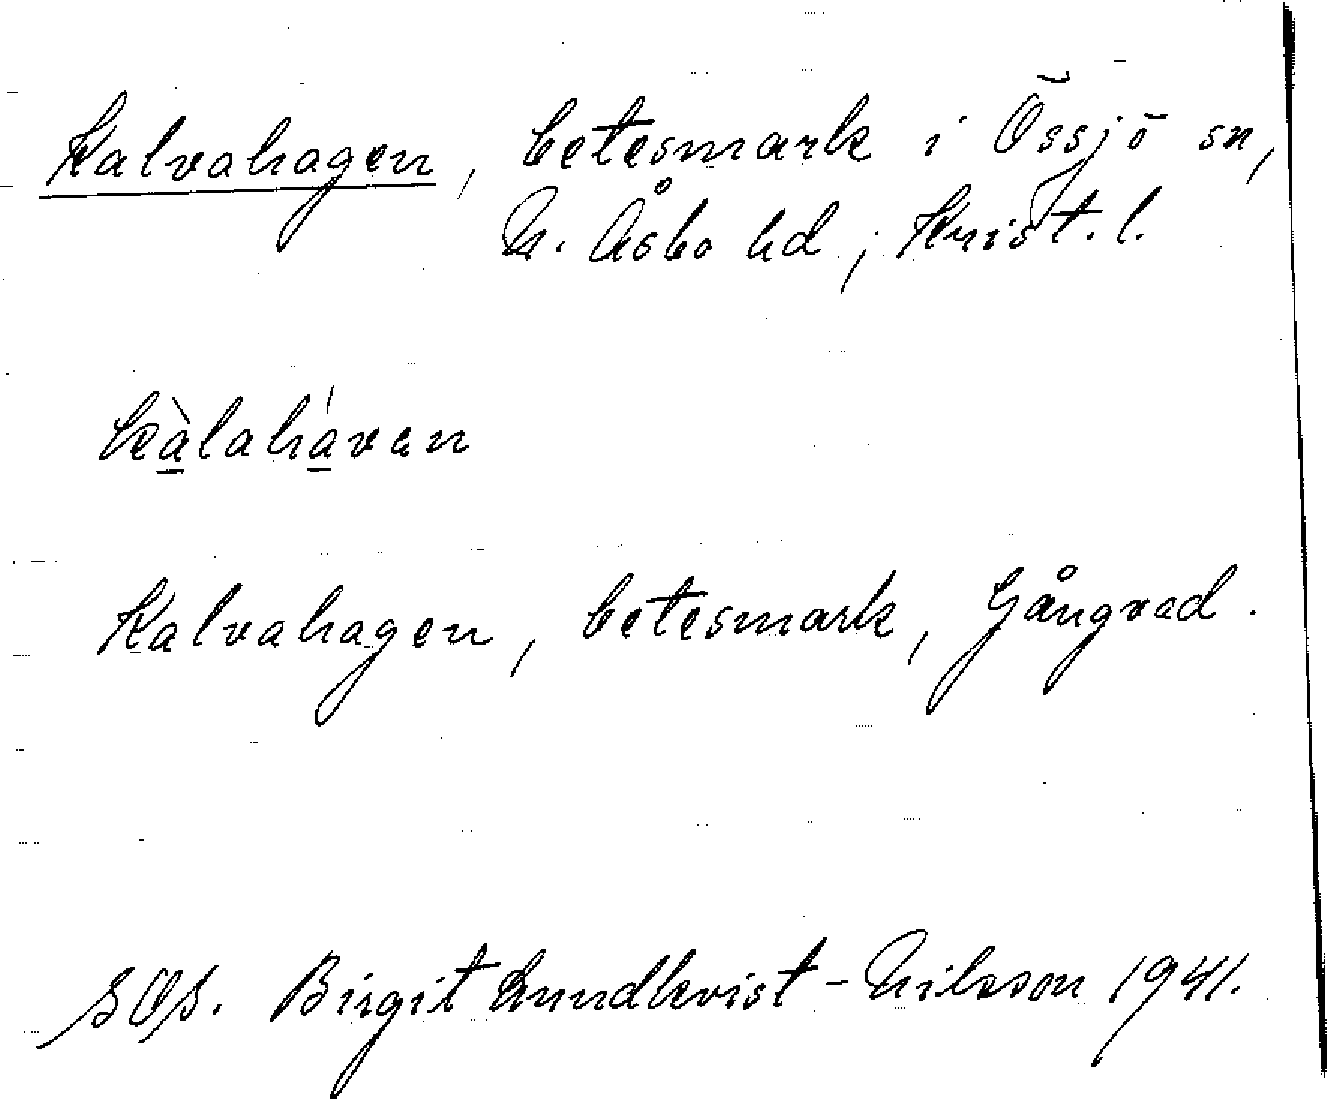 Kalvahagen, betesmark i Össjö sn,
N. Åsbo hd, Krist. l.
kàlaháven
Kalvahagen, betesmark, Gångvad.
SOS. Birgit Lundkvist-Nilsson 1941.